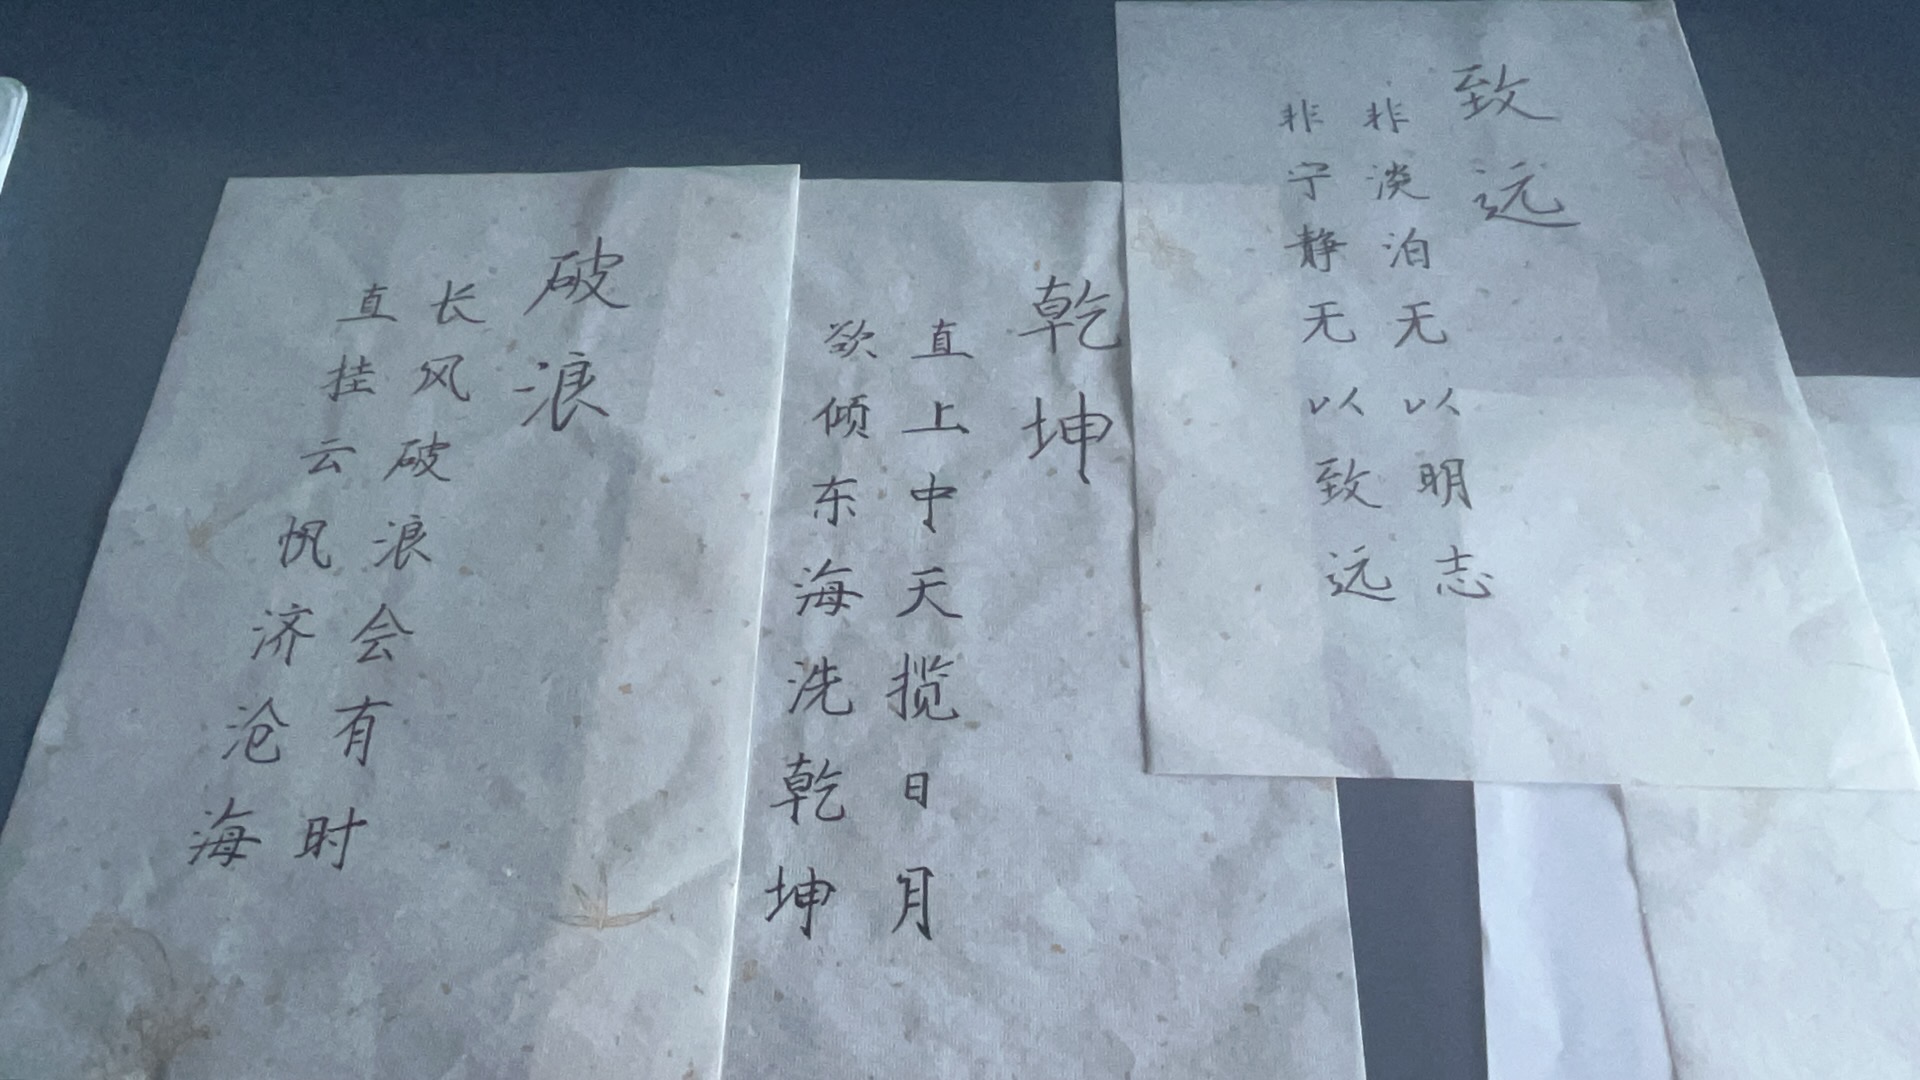 破浪
长风破浪会有时
直挂云帆济沧海
乾坤
直上中天揽日月
欲倾东海洗乾坤
致远
非淡泊无以明志
非宁静无以致远